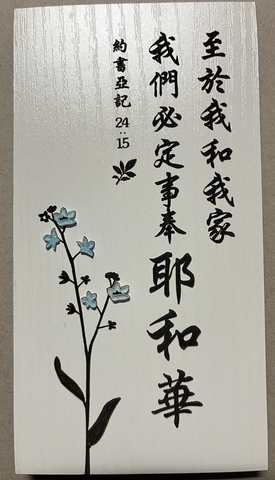 至於我和我家
我們必定事奉耶和華
約書亞記 24:15